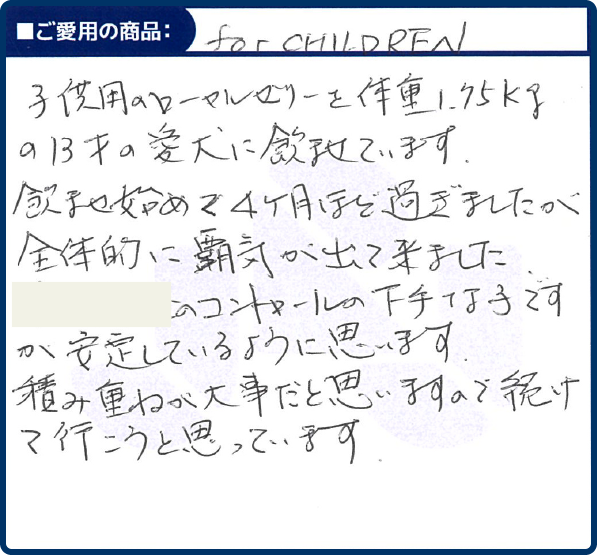 ■ご愛用の商品：
for CHILDREN
子供用のローヤルゼリーを体重1.75kg
の13才の愛犬に飲ませています.
飲ませ始めて4ヶ月ほど過ぎましたが
全体的に覇気が出て来ました.
のコントロールの下手な子です
が安定しているように思います.
積み重ねが大事だと思いますので続け
て行こうと思っています